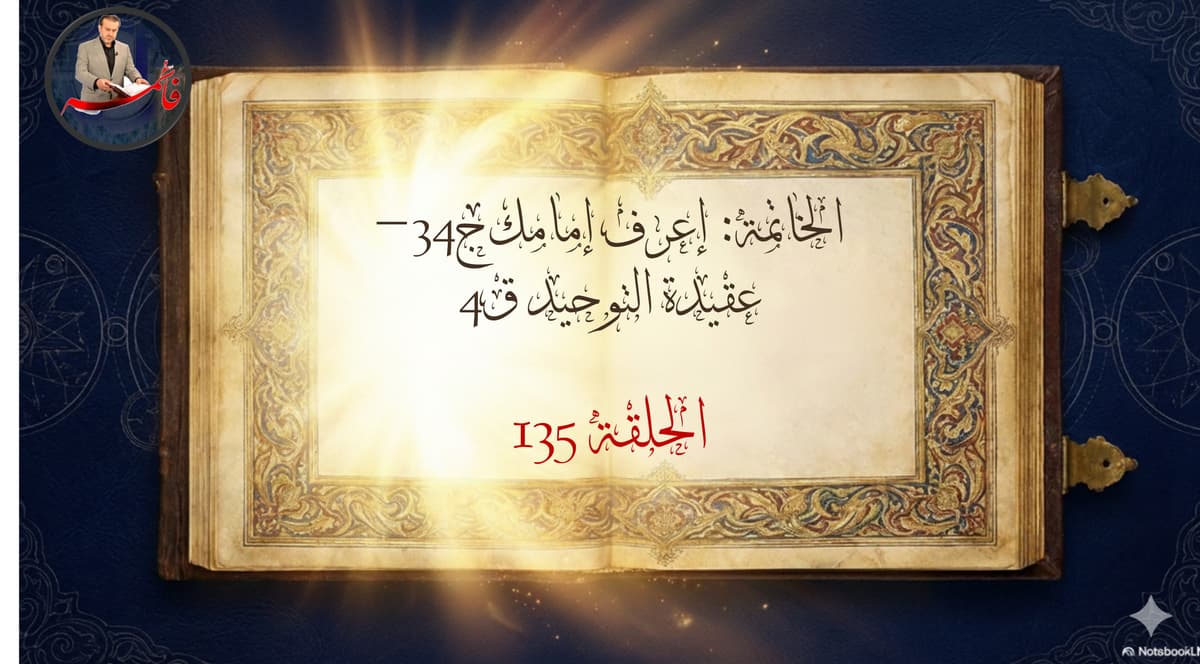 فاطمة
الخاتمة: إعرف إمامك ج34 –
عقيدة التوحيد ق4
الحلقة 135
NotsbookLM